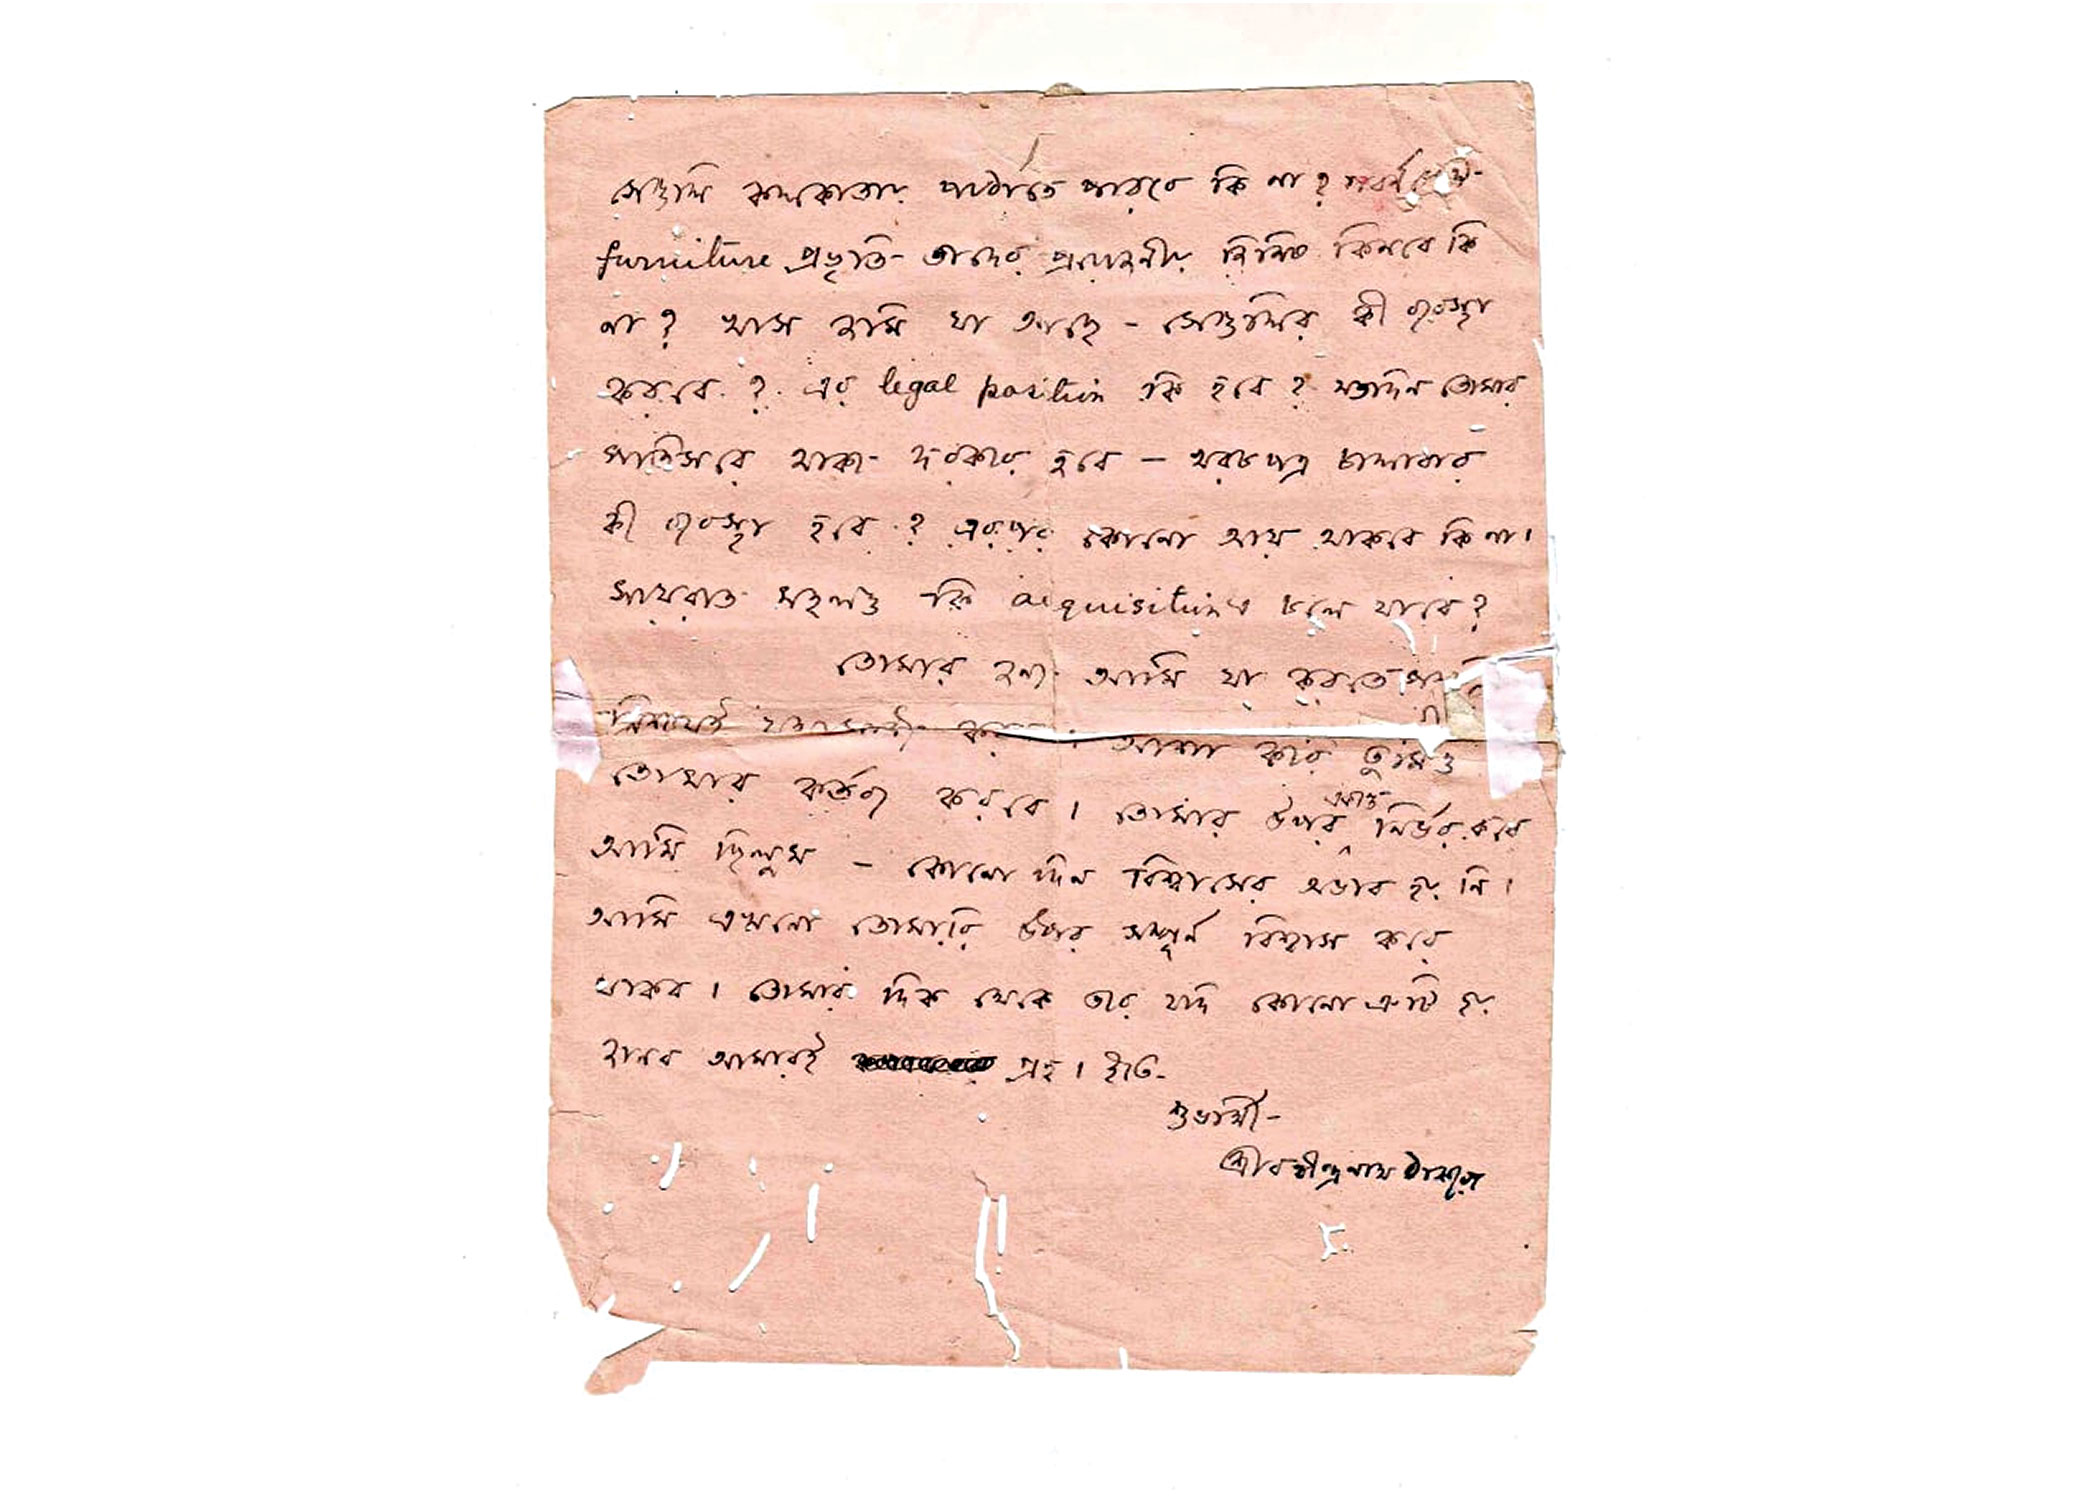 সেগুলি কলকাতায় পাঠাতে পারবে কি না? গবর্ণমেন্ট
furniture প্রভৃতি তাদের প্রয়োজনীয় জিনিষ কিনবে কি
না? খাস জমি যা আছে – সেগুলির কী ব্যবস্থা
করবে? এর legal position কি হবে? যতদিন তোমার
পতিসরে থাকা দরকার হবে – খরচপত্র চালাবার
কী ব্যবস্থা হবে? এরপর কোনো আয় থাকবে কি না।
সায়রাত মহলও কি acquisitionএ চলে যাবে?
তোমার জন্য আমি যা করতে
নিশ্চয়ই আশা করি তুমিও
তোমার কর্তব্য করবে। তোমার উপর একান্ত নির্ভর করে
আমি ছিলুম – কোনো দিন বিশ্বাসের অভাব হয় নি।
আমি এখনো তোমারি উপর সম্পূর্ণ বিশ্বাস করে
থাকব। তোমার দিক থেকে তার যদি কোনো ত্রুটি হয়
জানব আমারই গ্রহ। ইতি
শুভার্থী
শ্রীরথীন্দ্রনাথ ঠাকুর